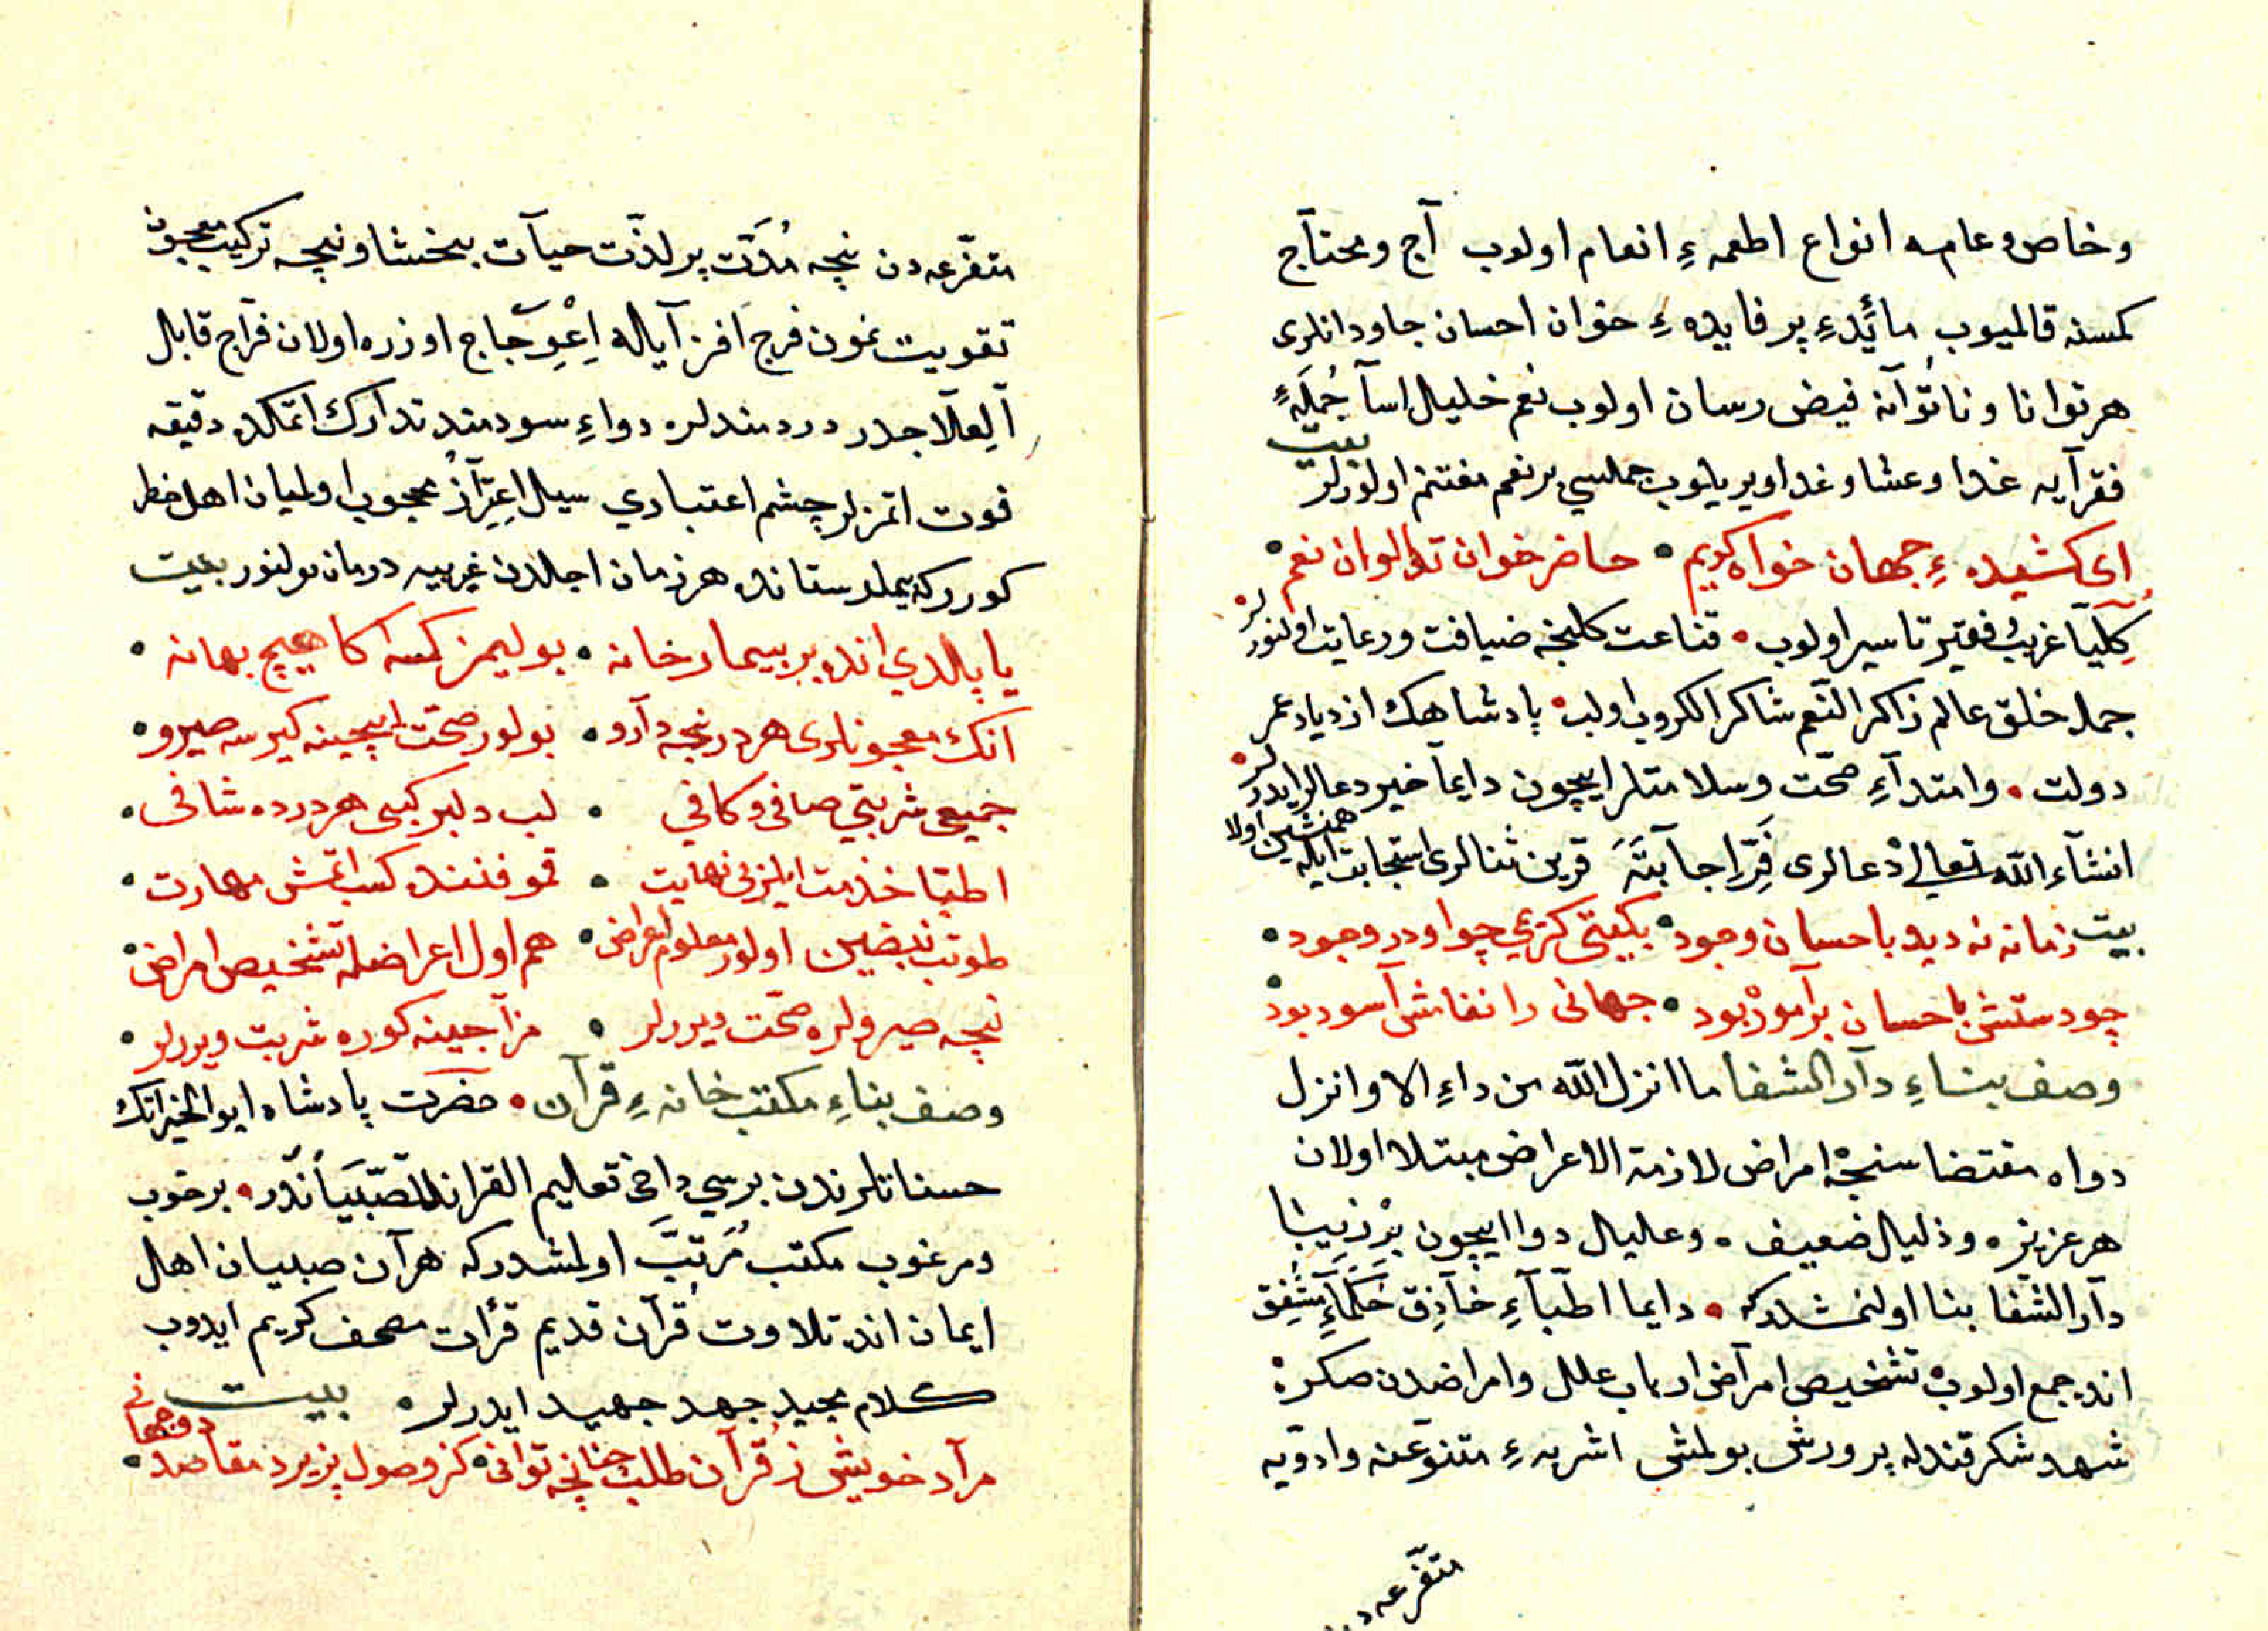 وخاص وعامه انواع اطعمهٔ انعام اولوب آج ومحتآج
كمسنه قالميوب مائدهٔ پر فايدهٔ خوان احسان جاودانلرى
هر توانا و ناتوآنه فيض رسان اولوب نعم خليل اسآ جُملهٔ
فقرآيه غدا وعشا وغداويريلوب جملسي بر نعم مغتنم اولورلر بيت
اى كشيدهٔ جهان خواه كريم • حاضر خوان تو الوان نعم •
كِلّيآ غريب وفقير تا سير اولوب • قناعت كلنجه ضيافت ورعايت اولنورلر •
جمله خلق عالم ذاكر النّعم شاكر الكروب اولب • پادشاهك ازدياد عمر
دولت • وامتدآءِ صحّت وسلامتلر ايچون دايماً خير دعالر ايدرلر •
انشآء اللّه تعالى دعالرى قرّ اجابته قرين ثنالرى استجابت ايله همنشين اولا
بيت زمانه نه ديده باحسان وجود • بكيتى كريمى چو او در وجود •
چو دستش باحسان برآموده بود • جهانى را نفامش آسوده بود •
وصف بناءِ دآر الشفا ما انزل اللّه من داءِ الا وانزل
دواه مقتضاسنجه امراض لازمة الاعراض مبتلا اولان
هر عزيز • وذليل ضعيف • وعليل دوا ايچون بر زيبا
دآر الشفا بنا اولنمشدركه • دايما اطبآءِ حآذق حكمآءِ مشفق
انده جمع اولوب تشخيص امرآض ارباب علل وامراضدن صكره
شهد شكر قندله پرورش بولمش اشربهٔ متنوّعه وادويه
متفرّعه دن
متفرّعه دن نيچه مُدّت پر لذّت حيآت بخشا ونيچه تركيب معجون
تقويت نمون فرج افزآ ياله اِعْوِجآج اوزره اولان مزاج قابل
آلِعلآجدر دردمندلره دواءِ سودمند تدآرك اتمكده دقيقه
فوت اتمزلر چشم اعتباري سيل اعتزآز محجوب اولميان اهل خطر
كوررك بيمارستانده هر زمان اجلدن غيريه درمان بولنور بيت
ياپالدي انده بر بيمارخانه • بوليمز كسه اكا هيچ بهانه •
انك معجونلرى هر درنجه دآرو • بولور صحّت ايچينه كيرسه صيرو •
جميعى شربتى صافى وكافي • لب دلبر كبى هر درده شافى •
اطبّا خدمت ايلر بى نهايت • قمو فننده كسب اتمش مهارت •
طوتب نبضين اولور معلوم اعراض • هم اول اعراضله تشخيص امراض •
نيچه صيرولره صحّت ويررلر • مزآجينه كوره شربت ويررلر •
وصف بناءِ مكتب خانهٔ قرآن • حضرت پادشاه ابو الخيراتك
حسناتلرندن برسي داخى تعليم القران للصّبياندر • بر خوب
ومرغوب مكتب مُرتّب اولمشدركه هر آن صبيان اهل
ايمان انده تلاوت قُرآن قديم قرأت مصحف كريم ايدوب
كلام مجيد جهد جهيد ايدرلر • بيت
مرآد خويش ز قُرآن طلب چنانچه توانى • كز وصول پزيرد مقاصد دوجهانى •